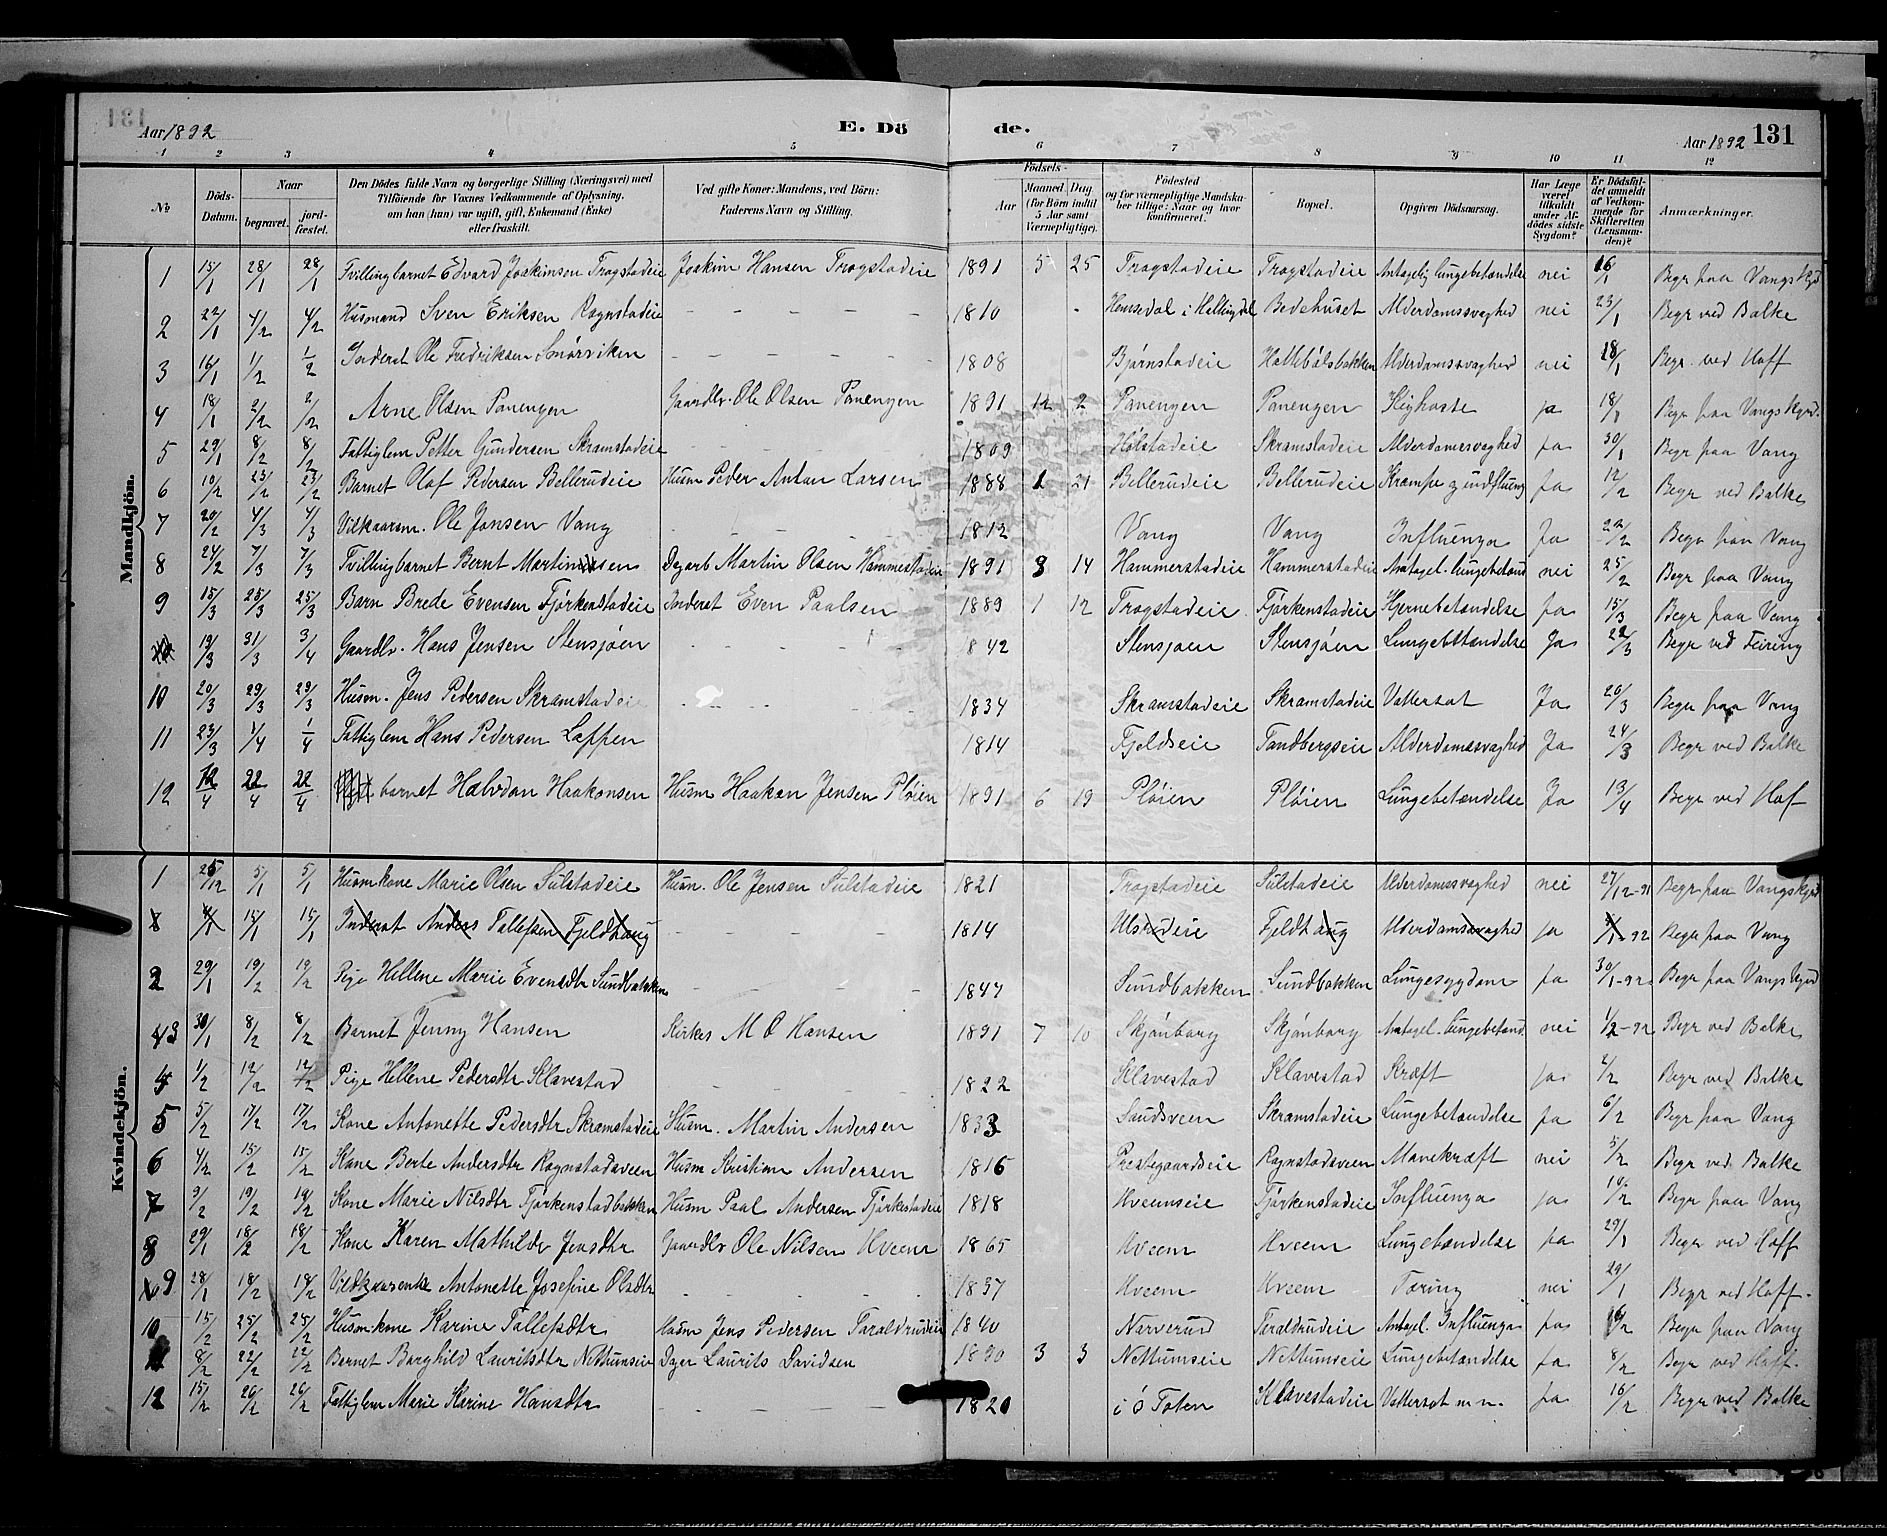 Aar 1892 E. Dö de. Aar 1892 131
1 2 3 4 5 6 7 8 9 10 11 12
№ Döds-Datum. Naar begravet. jord-fæstet. Den Dödes fulde Navn og borgerlige Stilling (Næringsvei) med Tilföiende for Voxnes Vedkommende af Oplysning, om han (hun) var ugift, gift, Enkemand (Enke) eller fraskilt. Ved gifte Koner: Mandens, ved Börn: Faderens Navn og Stilling. Födsels- Aar Maaned Dag (for Börn indtil 5 Aar samt Værnepligtige). Födested og for værnepligtige Mandskaber tillige: Naar og hvor konfirmeret. Bopæl. Opgiven Dödsaarsag. Har Læge været tilkaldt under Afdödes sidste Sygdom? Er Dödsfaldet anmeldt af Vedkommende for Skifteretten (Lensmanden)? Anmærkninger.
Mandkjön.
1 15/1 28/1 28/1 Tvillingbarnet Edvard Joakimsen Trogstadeie Joakim Hansen Trogstadeie 1891 5 25 Trogstadeie Trogstadeie Antagelig Lungebetændelse nei 16/1 Begr paa Vangs Kgd
2 22/1 4/2 4/2 Husmand Sven Eriksen Rognstadeie 1810 Hemsedal i Hallingdal Bedehuset Alderdomssvaghed nei 23/1 Begr ved Balke
3 16/1 1/2 1/2 Inderst Ole Fredriksen Smörviken 1808 Bjørnstadeie Hattebölsbakken Alderdomssvaghed nei 18/1 Begr. ved Hoff
4 18/1 2/2 2/2 Arne Olsen Panengen Gaardbr. Ole Olsen Panengen 1891 12 2 Panengen Panengen Kighoste ja 18/1 Begr paa Vangs Kgrd.
5 29/1 8/2 8/2 Fattiglem Petter Gundersen Skramstadeie 1809 Hølstadeie Skramstadeie Alderdomssvaghed ja 30/1 Begr paa Vang
6 10/2 23/2 23/2 Barnet Olaf Pedersen Bellerudeie Husm Peder Anton Larsen 1888 1 21 Bellerudeie Bellerudeie Krampe og indfluens ja 12/2 Begr ved Balke
7 20/2 4/3 4/3 Vilkaarsm. Ole Jonsen Vang 1812 Vang Vang Influenza Ja 22/2 Begr paa Vang
8 24/2 7/3 7/3 Tvillingbarnet Bernt Martinsen Dagarb Martin Olsen Hammestadeie 1891 3 14 Hammerstadeie Hammerstadeie Antagel. Lungebetænd nei 25/2 Begr paa Vang
9 15/3 25/3 25/3 Barn Brede Evensen Fjørkenstadeie Inderst Even Paalsen 1889 1 12 Trogstadeie Fjørkenstadeie Hjernebetændelse ja 15/3 Begr paa Vang
19/3 31/3 3/4 Gaardbr. Hans Jensen Stensjøen 842 Stensjøen Stensjøen Lungebetændelse Ja 22/3 Begr ved Feiring
10 20/3 29/3 29/3 Husm. Jens Pedersen Skramstadeie 1834 Skramstadeie Skramstadeie Vattersot Ja 20/3 Begr paa Vang
11 23/3 1/4 1/4 Fattiglem Hans Pedersen Lappen 1814 Fjeldseie Sandbergseie Alderdomssvaghed Ja 24/3 Begr ved Balke
12 12/4 22/4 22/4 barnet Halvdan Haakonsen Husm Haakon Jensen Pløien 1891 6 19 Pløien Pløien Lungebetændelse Ja 13/4 Begr ved Hof
Kvindekjön.
1 25/12 5/1 5/1 Husmkone Marie Olsen Sulstadeie Husm. Ole Jensen Sulstadeie 1821 Trogstadeie Sulstadeie Alderdomssvaghed nei 27/12-91 Begr paa Vangs Kgrd
4/1 15/1 15/1 Inderst Anders Tollefsen Fjeldhaug 1814 Ulsrudeie Fjeldhaug Alderdomssvaghed ja 5/1-92 Begr paa Vang
2 29/1 19/2 19/2 Pige Hellene Marie Evensdtr Sundbakken 1847 Sundbakken Sundbakken Lungesygdom ja 30/1-92 Begr paa Vangs Kgrd
3 30/1 8/2 8/2 Barnet Jenny Hansen Kirkes M O Hansen 1891 7 10 Skjönborg Skjönborg Antagel. Lungebetænd. nei 1/2-92 Begr ved Balke
4 1/2 12/2 12/2 Pige Hellene Pedersdtr Klavestad 1822 Klavestad Klavestad Kræft ja 2/2 Begr ved Balke
5 5/2 17/2 17/2 Kone Antonette Pedersdtr Skramstadeie Husm. Martin Andersen 1833 Sandsveen Skramstadeie Lungebetændelse ja 6/2 Begr paa Vang
6 4/2 15/2 15/2 Kone Berte Andersdtr Rognstadsveen Husm Kristian Andersen 1816 Prestegaardseie Rognstadsveen Mavekræft nei 5/2 Begr ved Balke
7 9/2 19/2 19/2 Kone Marie Nilsdtr Fjørkenstadbakken Husm Paal Andersen Fjørkestadeie 1818 Hveemseie Fjørkenstadeie Influenza ja 10/2 Begr paa Vang
8 29/1 18/2 18/2 Kone Karen Mathilde Jensdtr Gaardbr Ole Nilsen Hveem 1865 Hveem Hveem Lungebetændelse ja 29/1 Begr ved Hoff
9 28/1 18/2 18/2 Vilkaarsenke Antonette Josefine Olsdtr 1837 Hveem Hveem Tæring nei 29/1 Begr ved Hoff.
10 15/2 25/2 25/2 Husm.kone Karine Tollefsdtr Husm Jens Pedersen Taraldrudeie 1840 Narverud Taraldrudeie Antagel. Influenza ja 16/2 Begr paa Vang
8/2 22/2 22/2 Barnet Borghild Lauritsdtr Nettumseie Dagar Laurits Davidsen 1890 3 3 Nettumseie Nettumseie Lungebetændelse ja 8/2 Begr ved Hoff.
12 15/2 26/2 26/2 Fattiglem Marie Karine Hansdtr 1820 i ö Toten Klavestadeie Vattersot m.m. ja 16/2 Begr ved Balke